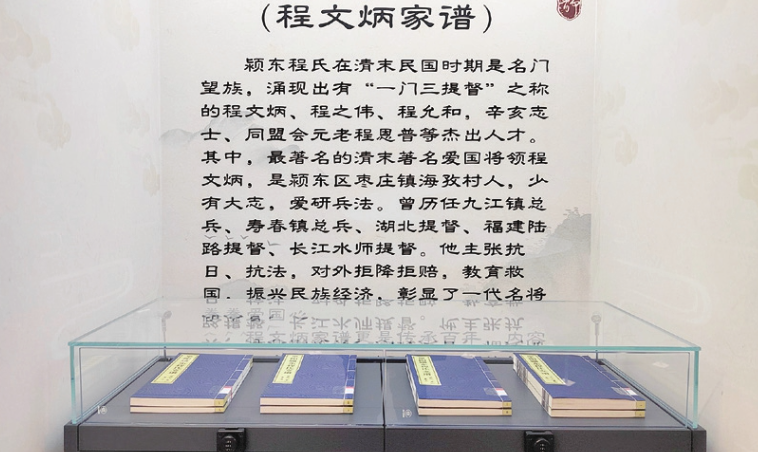 (程文炳家谱)
颍东程氏在清末民国时期是名门
望族，涌现出有“一门三提督”之称
的程文炳、程之伟、程允和，辛亥志
士、同盟会元老程恩普等杰出人才。
其中，最著名的清末著名爱国将领程
文炳，是颍东区枣庄镇海孜村人，少
有大志，爱研兵法。曾历任九江镇总
兵、寿春镇总兵、湖北提督、福建陆
路提督、长江水师提督。他主张抗
日、抗法，对外拒降拒赔，教育救
国．振兴民族经济，彰显了一代名将